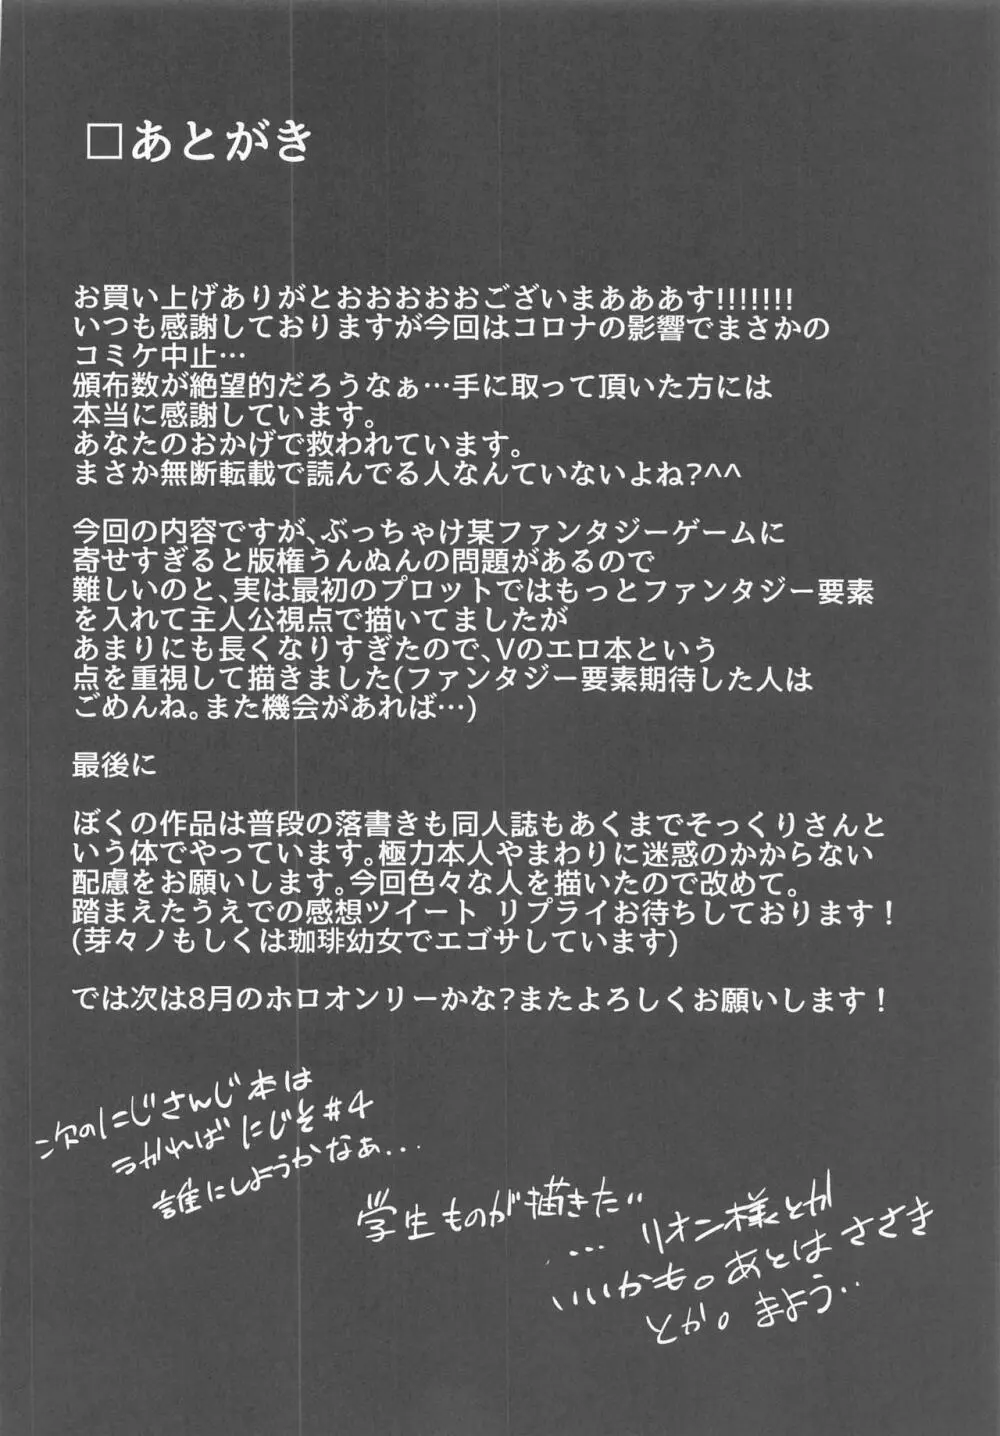 □あとがき
お買い上げありがとおおおおおございまあああす!!!!!!!
いつも感謝しておりますが今回はコロナの影響でまさかの
コミケ中止…
頒布数が絶望的だろうなぁ…手に取って頂いた方には
本当に感謝しています。
あなたのおかげで救われています。
まさか無断転載で読んでる人なんていないよね?^^
今回の内容ですが、ぶっちゃけ某ファンタジーゲームに
寄せすぎると版権うんぬんの問題があるので
難しいのと、実は最初のプロットではもっとファンタジー要素
を入れて主人公視点で描いてましたが
あまりにも長くなりすぎたので、Vのエロ本という
点を重視して描きました(ファンタジー要素期待した人は
ごめんね。また機会があれば…)
最後に
ぼくの作品は普段の落書きも同人誌もあくまでそっくりさんと
いう体でやっています。極力本人やまわりに迷惑のかからない
配慮をお願いします。今回色々な人を描いたので改めて。
踏まえたうえでの感想ツイート リプライお待ちしております！
(芽々ノもしくは珈琲幼女でエゴサしています)
では次は8月のホロオンリーかな?またよろしくお願いします！
次のにじさんじ本は
うかれば にじそ#4
誰にしようかなぁ...
学生ものが描きたい
... リオン様とか
いいかも。あとは ささき
とか。まよう..